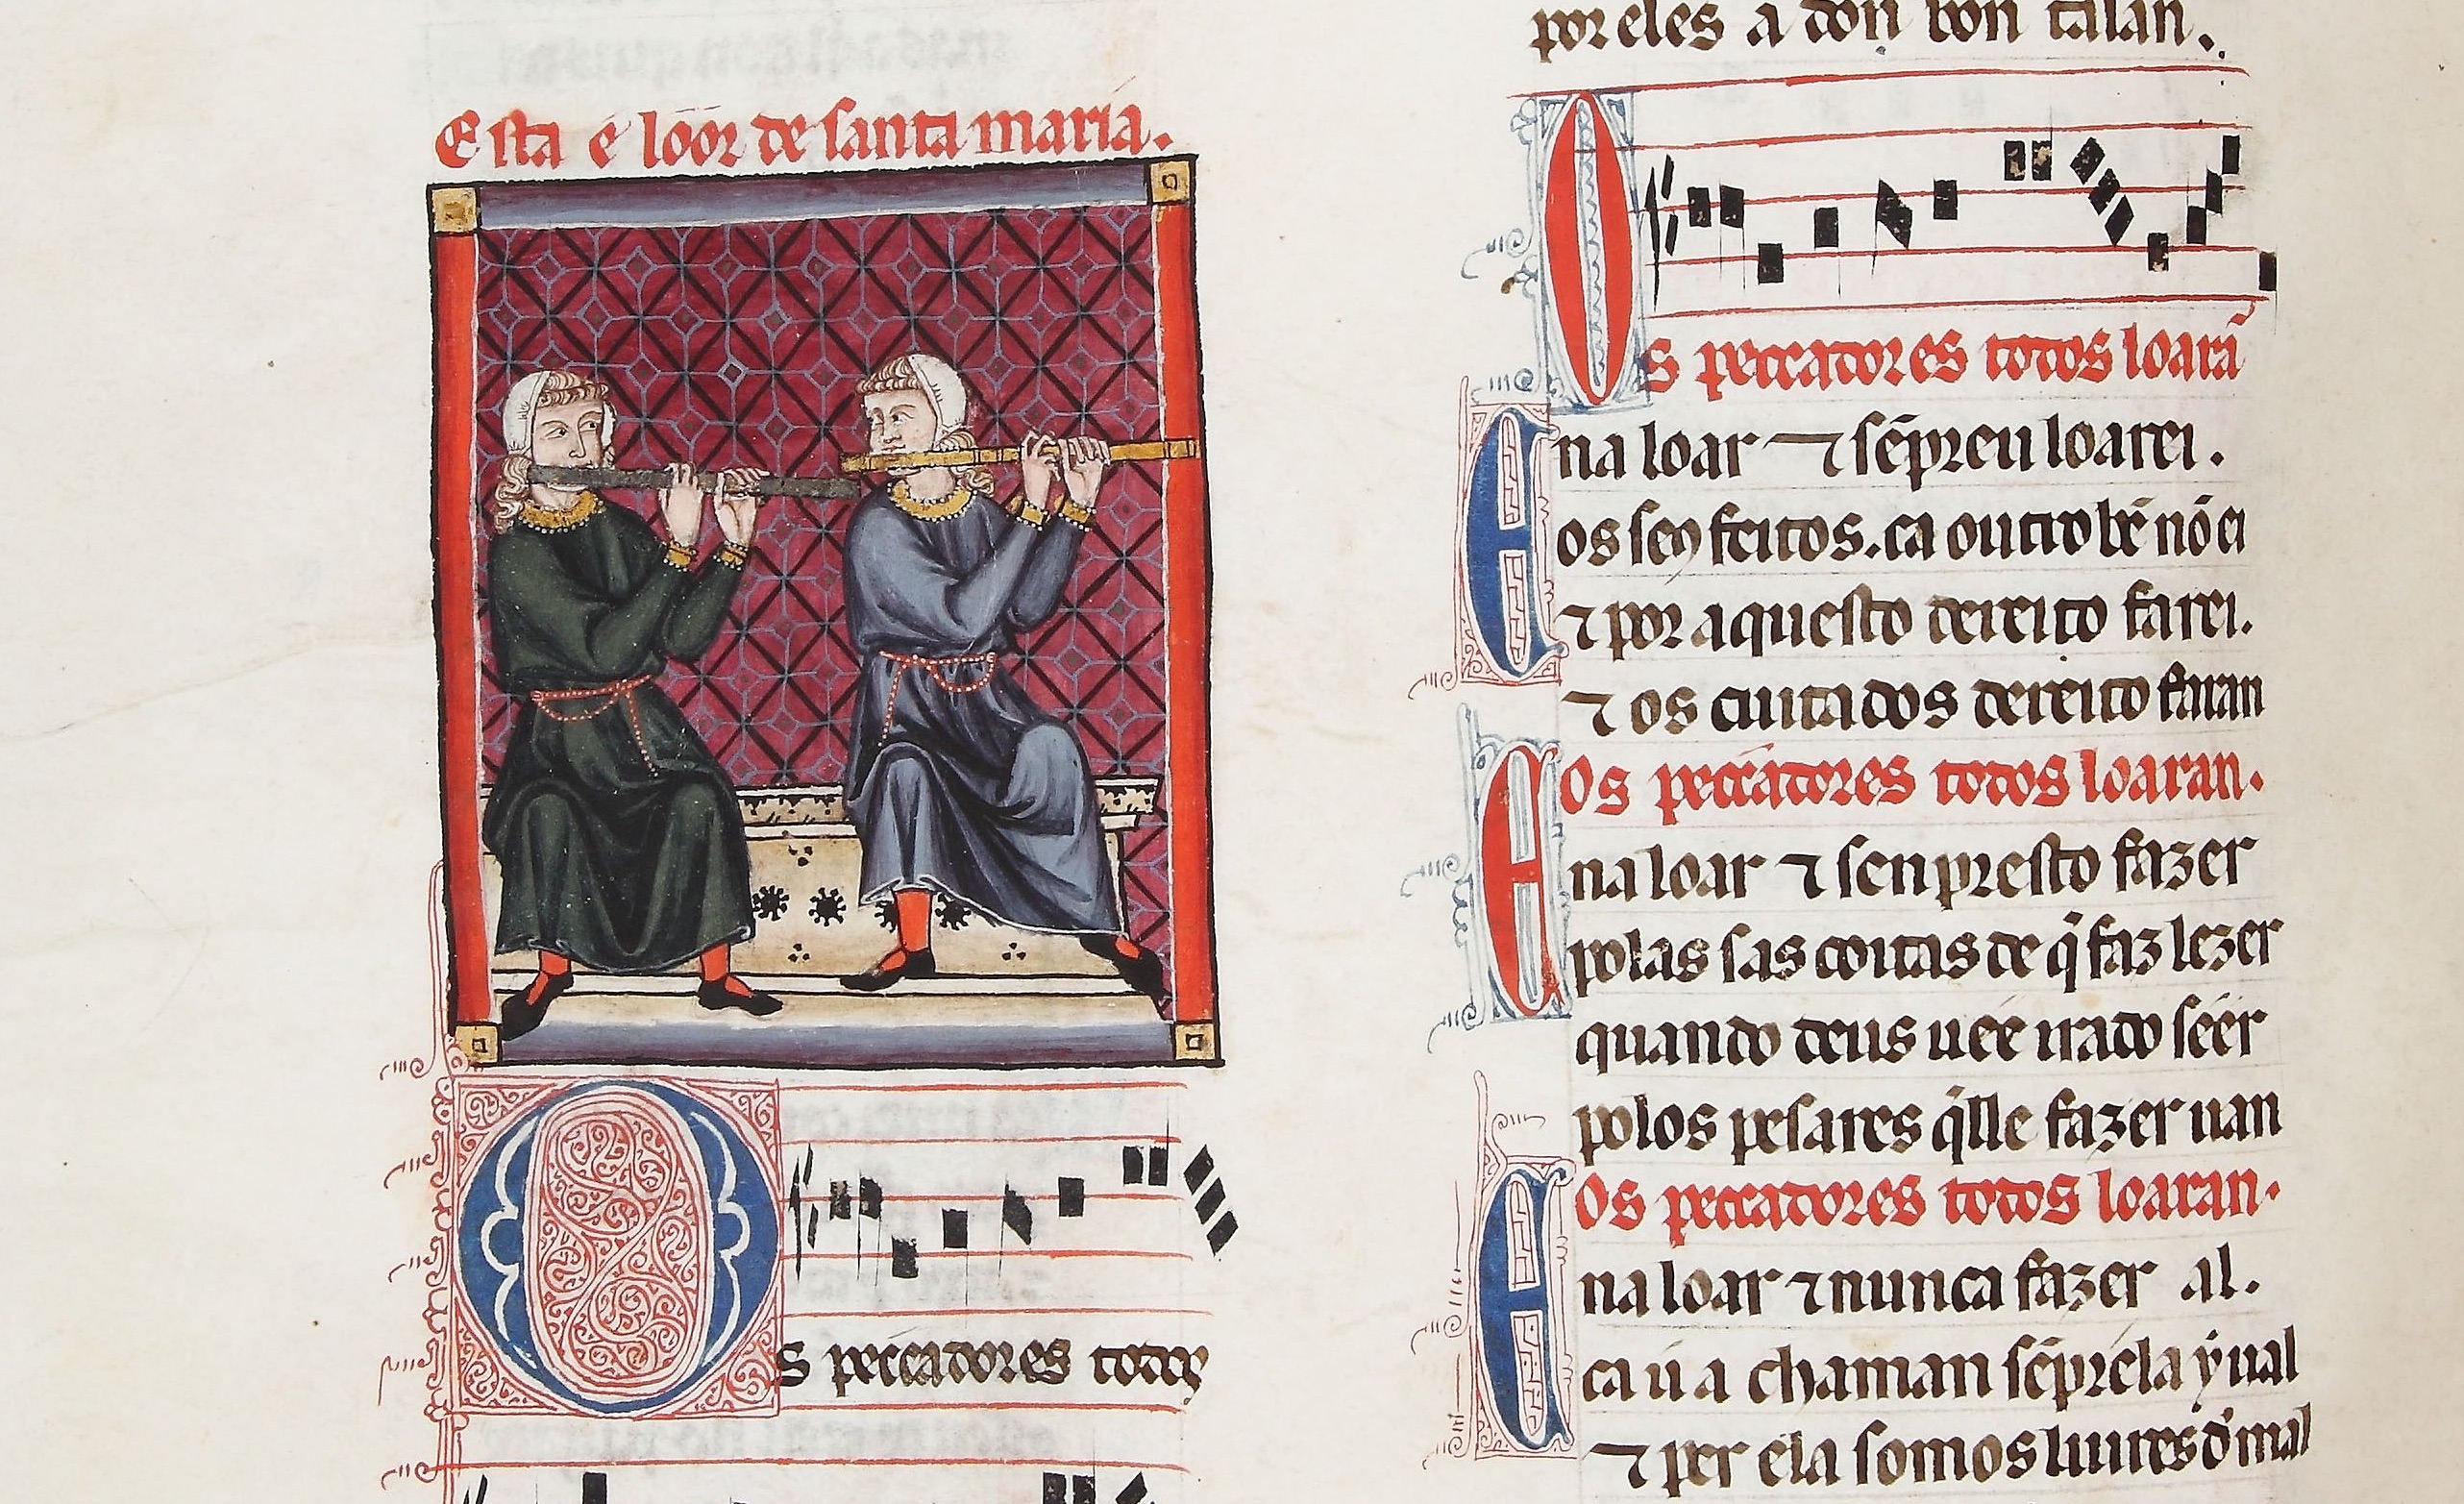 Esta é lóor de santa maria.
Os peccadores todos
por eles a don bon talan.
Os peccadores todos loarã
Ena loar ⁊ sẽpr eu loarei.
os seꝯ feitos. ca outro bẽ nõ ei
⁊ por aquesto dereito farei.
⁊ os cuitados dereito faran
Os peccadores todos loaran.
Ena loar ⁊ senpr esto fazer
polas sas coitas de q̃ faz lezer
quando deus uée irado séer
polos pesares q̃lle fazer uan
Os peccadores todos loaran.
Ena loar ⁊ nunca fazer al.
ca u a chaman sẽpr ela ý ual
⁊ per ela somos liures d mal